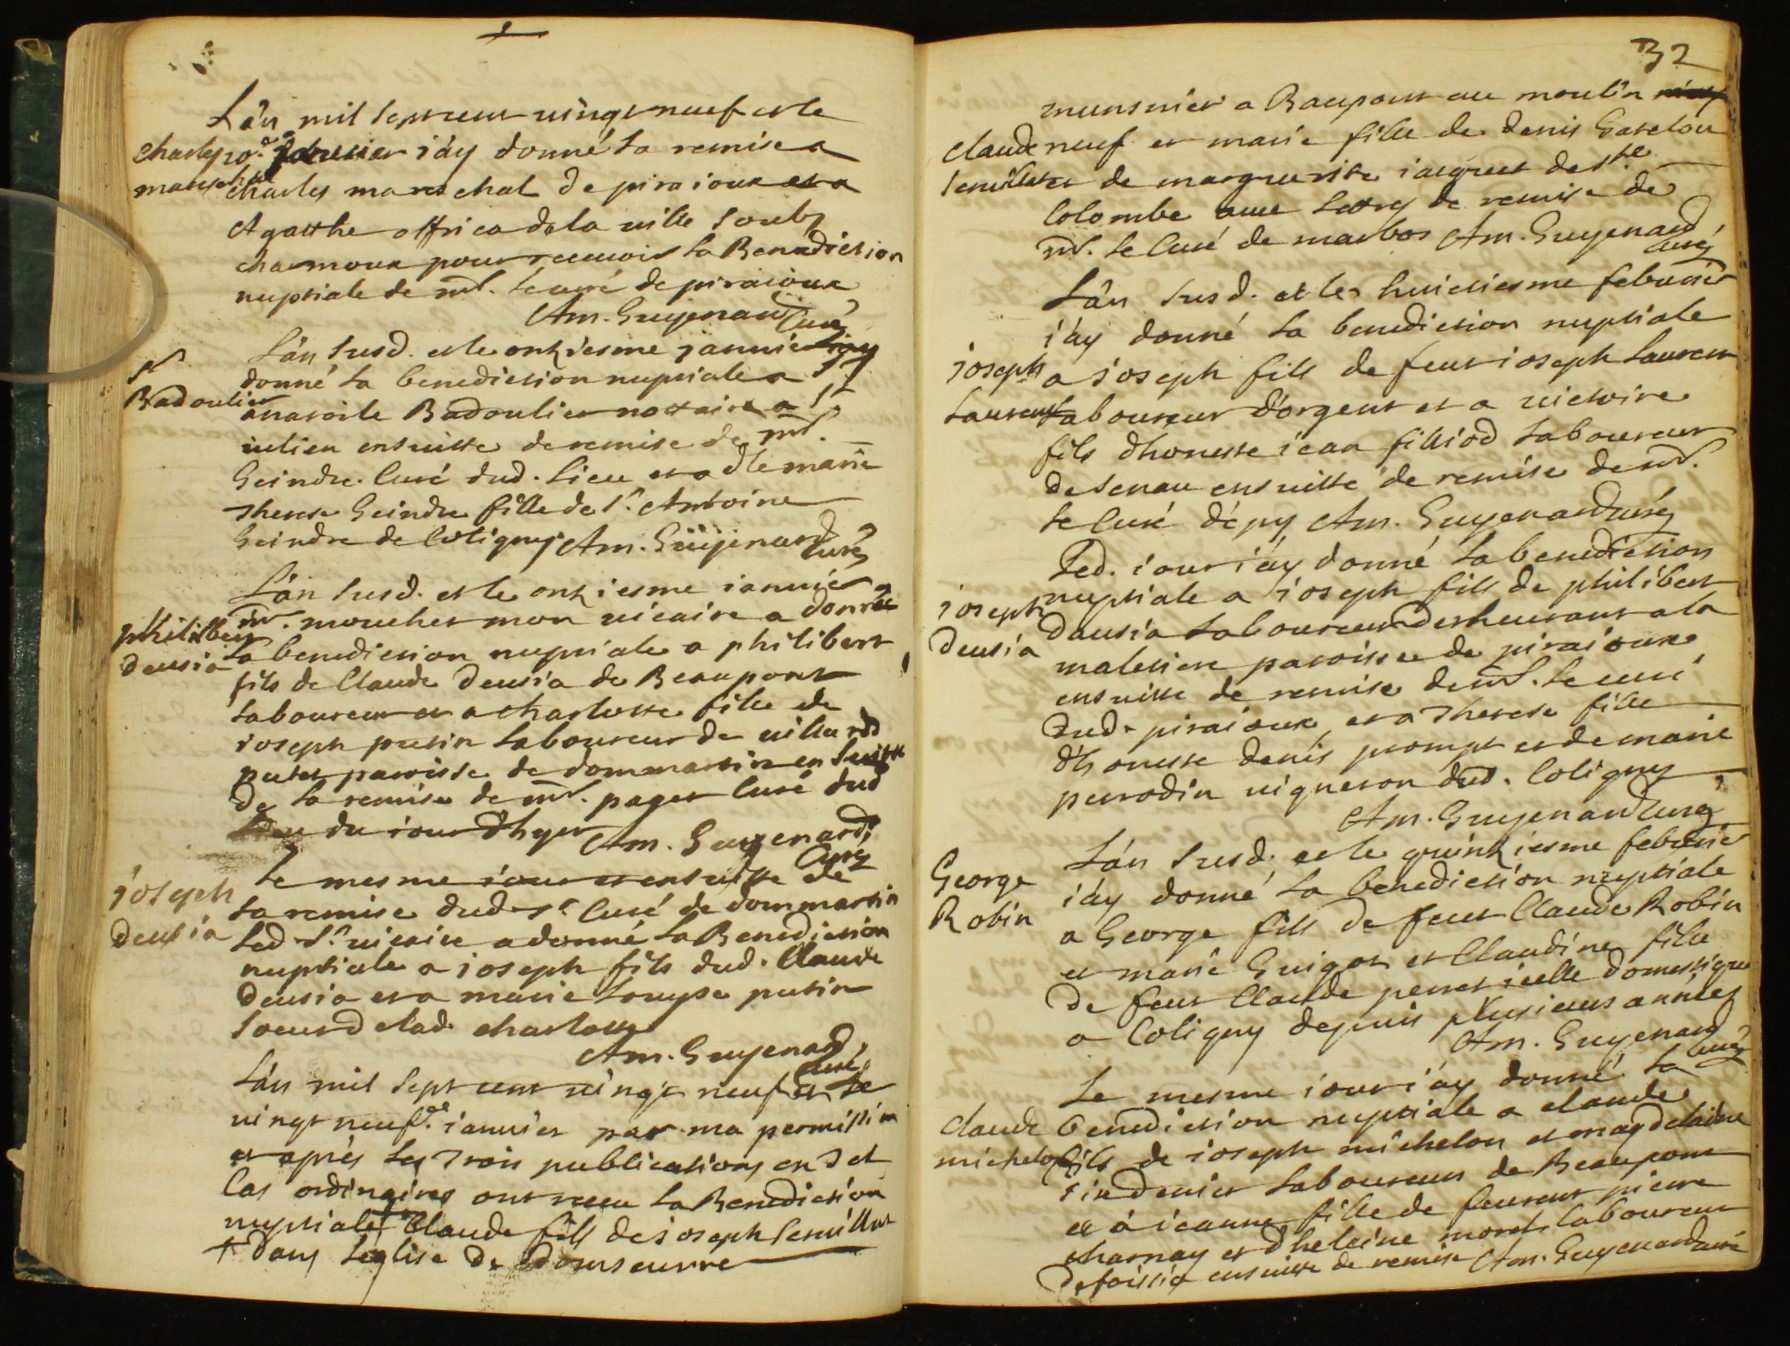 L'an mil sept cent vingt neuf et le
Charles 10e janvier i'ay donné la remise a
mareschal Charles mareschal de piraioux et a
Agatthe offrica de la ville soubz
charmoux pour recevoir la Benediction
nuptiale de mr. le curé de piraioux
Am. Guyenard Curé
L'an susd. et le onziesme janvier i'ay
sr donné la benediction nuptiale a sr
Badoulier anatoile Badoulier nottaire a st
iulien ensuitte de remise de mr.
Geindre Curé dud. Lieu et a dlle marie
Therese Geindre fille de sr. Antoine
Geindre de Coligny Am. Guyenard Curé
L'an susd. et le onziesme ianvier
mr. mouchet mon vicaire a donné
philibert la benediction nuptiale a philibert
deusia fils de Claude Deusia de Beaupont
laboureur et a charlotte fille de
ioseph putin laboureur de villard
putet paroisse de dommartin ensuitte
de la remise de mr. paget Curé dud
Lieu du iour d'hyer Am. Guyenard
Curé
le mesme iour et ensuitte de
ioseph la remise dud. sr Curé de dommartin
deusia led. sr. vicaire a donné la Benediction
nuptiale a ioseph fils dud. Claude
deusia et a marie Louyse putin
soeur de lad. charlotte
Am. Guyenard
curé
L'an mil sept cent vingt neuf et le
vingt neufe. ianvier par ma permission
et aprés les trois publications en tel
Cas ordinaires ont receu la Benediction
nuptiale + Claude fils de ioseph Servillat
+ dans leglise de Domseurre
32
munsnier a Baupont au moulin
Claude neuf et marie fille de denis Gavelou
Servillat et de margueritte iacquet de ste
Colombe avec lettres de remise de
mr. le Curé de marbos Am. Guyenard
curé
L'an susd. et le huictiesme febvrier
i'ay donné la benediction nuptiale
ioseph a ioseph fils de feu ioseph Laurent
Laurent laboureur d'orgent et a victoire
fils d'honeste iean filliod laboureur
de senau ensuitte de remise de mr.
le Curé d'épy Am. Guyenard curé
Led. iour i'ay donné la benediction
ioseph nuptiale a ioseph fils de philibert
deusia dausia laboureur demeurant a la
maletiere paroisse de piraioux
ensuitte de remise de mr. le curé
dud. piraioux et a Therese fille
d'honeste denis prompt et de marie
perrodin vigneron dud. Coligny
Am. Guyenard Curé
George L'an susd. et le quinziesme febvrier
Robin i'ay donné la benediction nuptiale
a George fils de feu Claude Robin
et marie Guigot et Claudine fille
de feu Claude perret icelle domestique
a Coligny depuis plusieurs années
Am. Guyenard
curé
Le mesme iour i'ay donné la
Claude benediction nuptiale a claude
michelon fils de ioseph michelon et magdelaine
laboureur de Beaupont
et a ieanne fille de feu pierre
charnay et d'helaine morel laboureur
de foissia ensuitte de remise Am. Guyenard curé